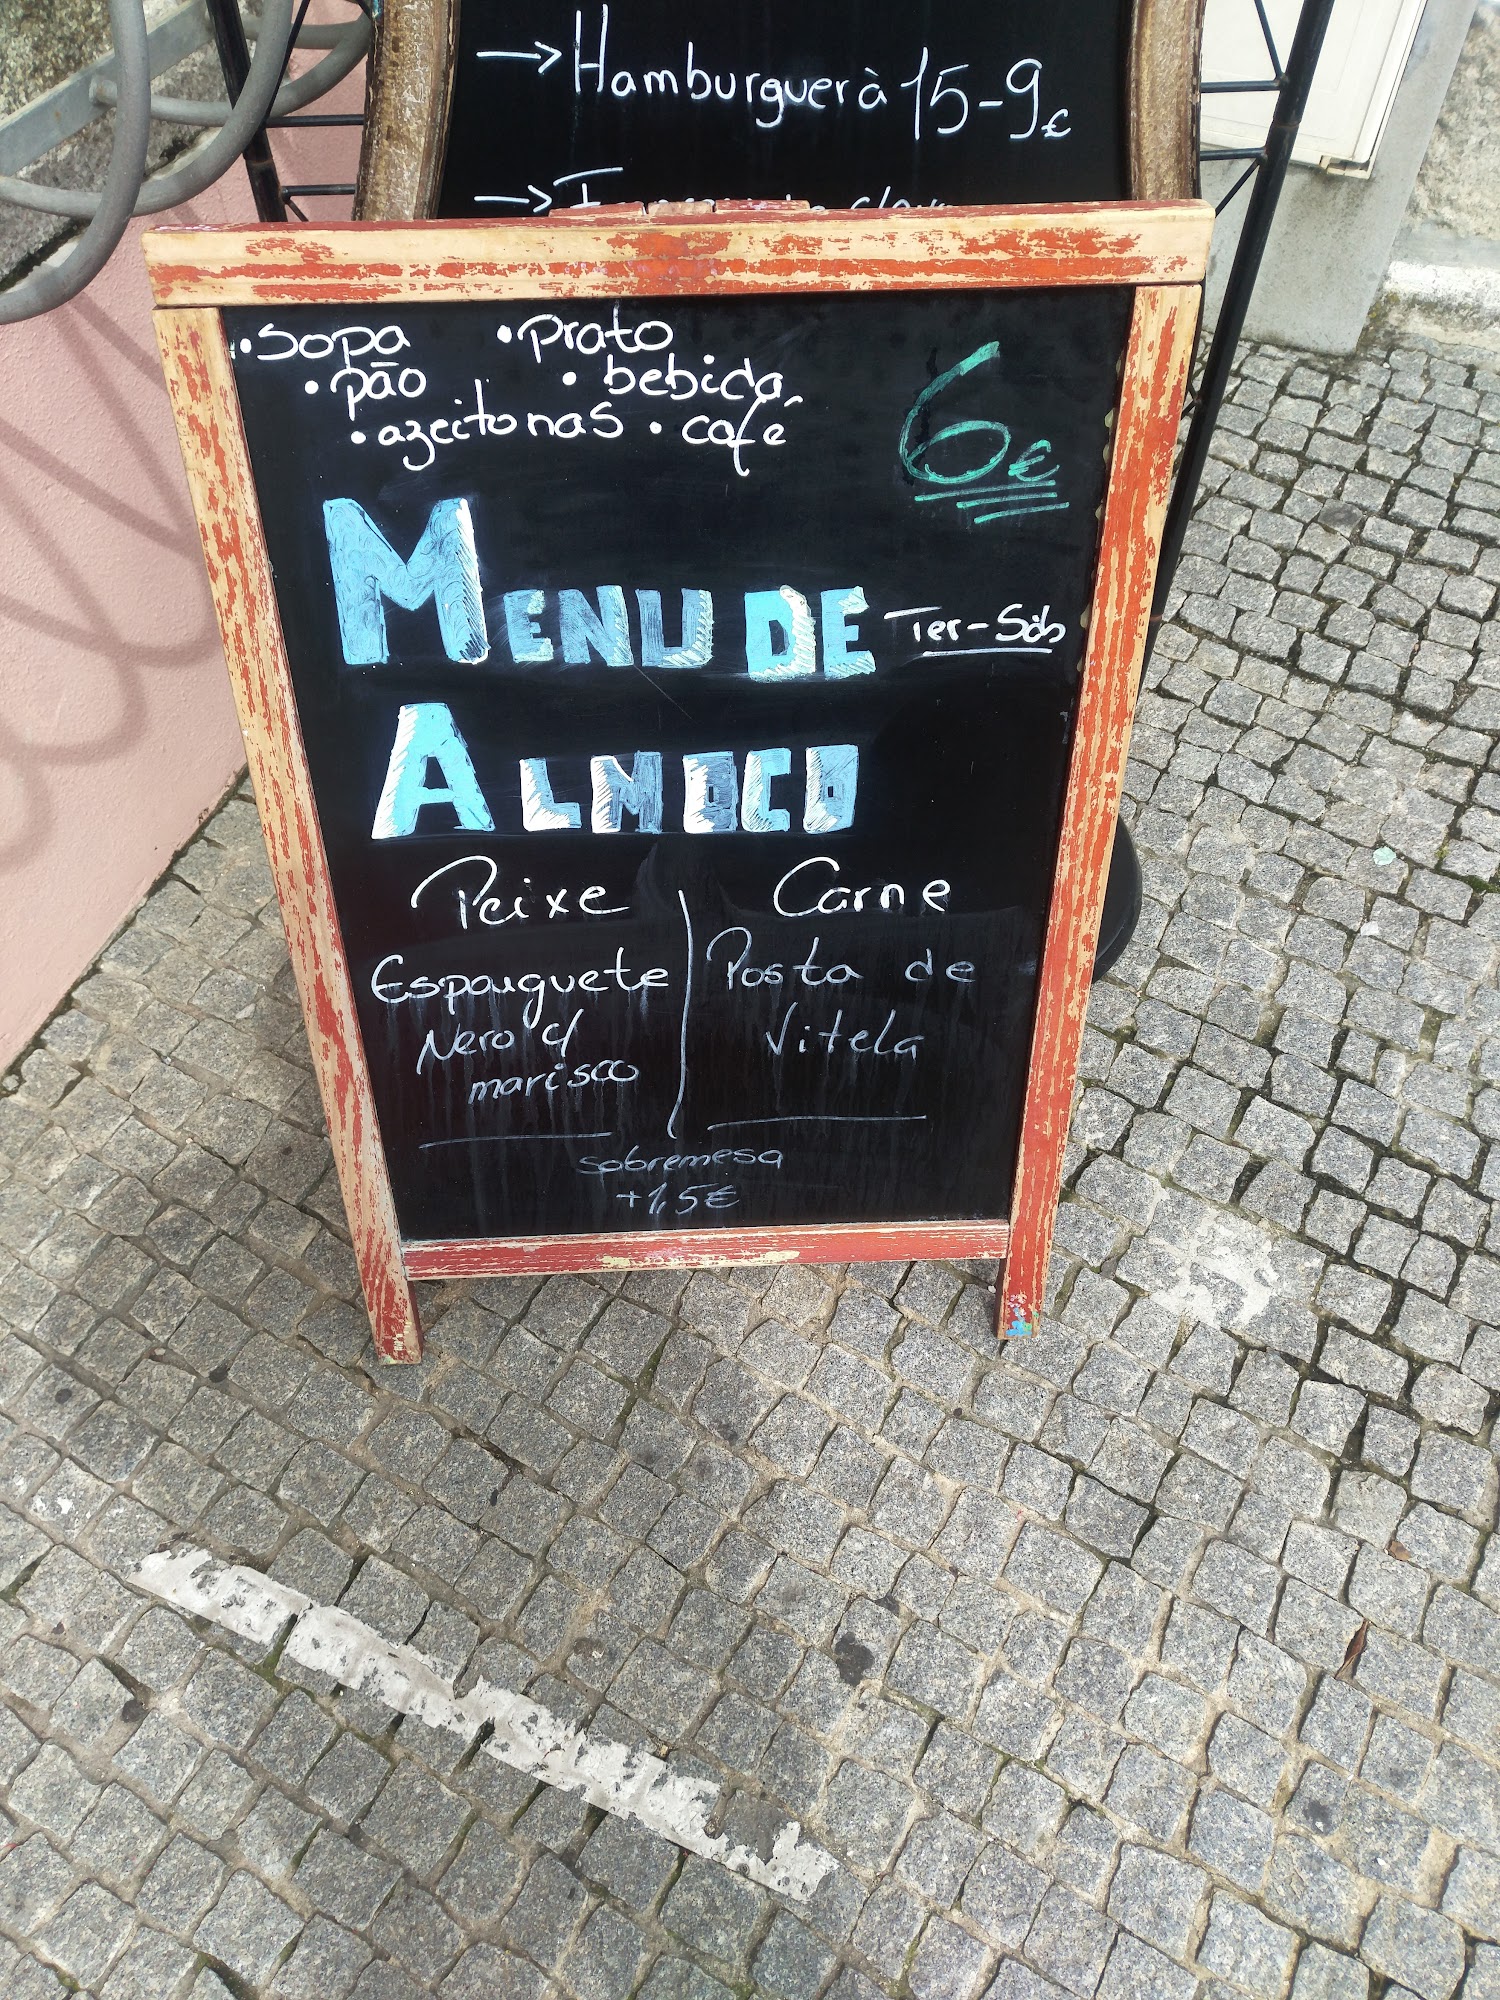 → Hamburguer à 15 - 9€
→
• sopa • prato
• pão • bebida
• azeitonas • café
6€
MENU DE
Ter-Sáb
ALMOCO
Peixe
Esparguete
Nero c/
marisco
Carne
Posta de
Vitela
sobremesa
+1,5€